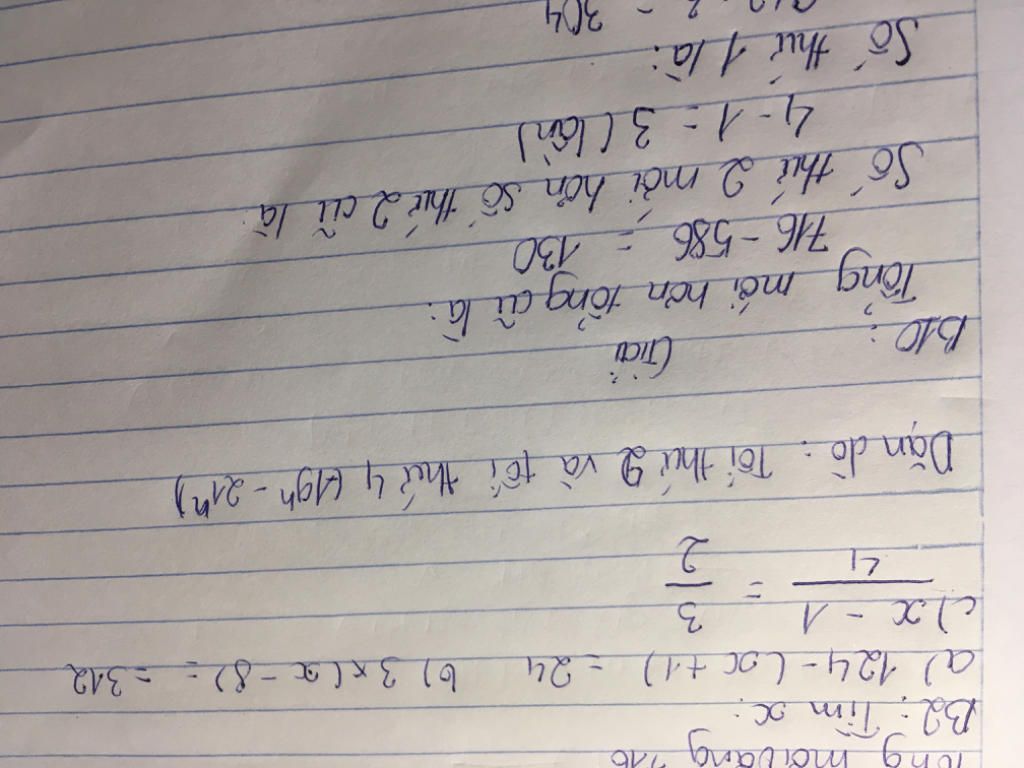 tổng mới bằng 716
B2: Tìm x:
a) 124 - (x + 1) = 24 b) 3 x (x - 8) = = 312
c) x - 1 / 4 = 3 / 2
Dặn dò: Tối thứ 2 và tối thứ 4 (19h - 21h)
B10: Giải
Tổng mới hơn tổng cũ là:
716 - 586 = 130
Số thứ 2 mới hơn số thứ 2 cũ là:
4 - 1 = 3 (lần)
Số thứ 1 là:
= 304